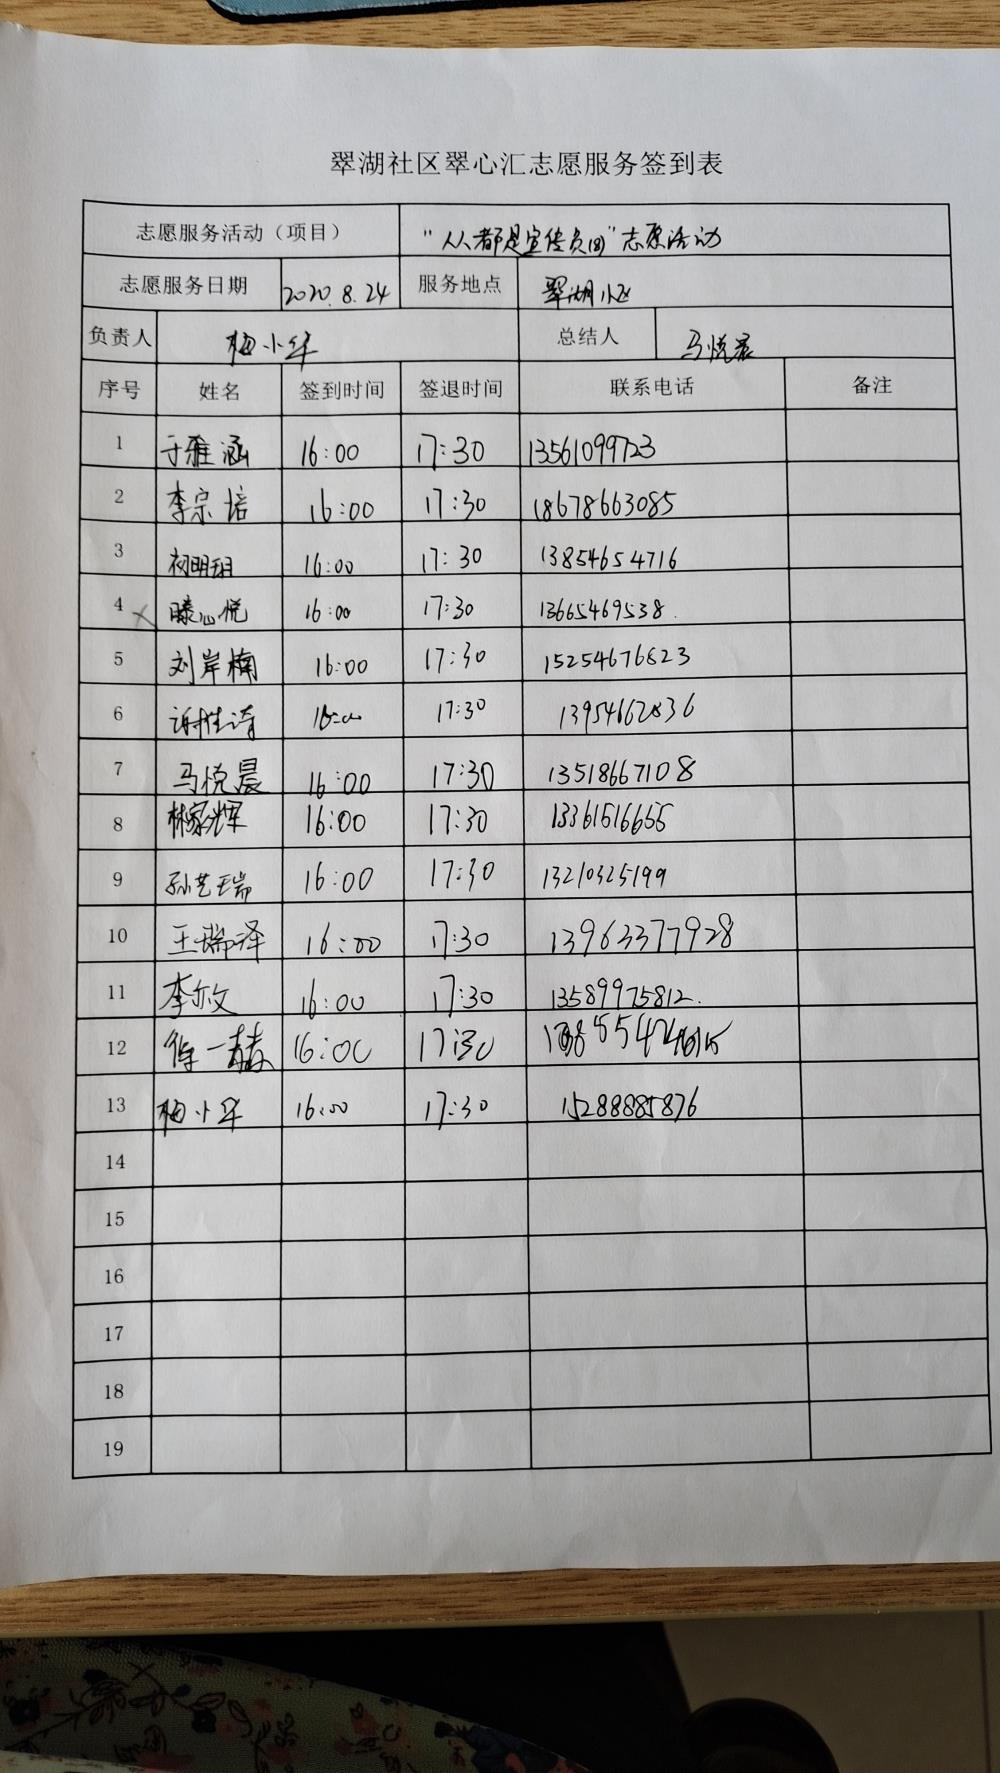 翠湖社区翠心汇志愿服务签到表
志愿服务活动（项目） “人人都是宣传员(四)”志愿活动
志愿服务日期 2020.8.24 服务地点 翠湖小区
负责人 梅小华 总结人 马悦晨
序号 姓名 签到时间 签退时间 联系电话 备注
1 于雅涵 16:00 17:30 13561099723
2 李宗培 16:00 17:30 18678663085
3 初明玥 16:00 17:30 13854654716
4 滕心悦 16:00 17:30 13665469538.
5 刘岸楠 16:00 17:30 15254676823
6 16:00 17:30 13954662836
7 马悦晨 16:00 17:30 13518667108
8 林家辉 16:00 17:30 13361516655
9 孙艺瑞 16:00 17:30 13210325199
10 王瑞泽 16:00 17:30 13963377928
11 李亦文 16:00 17:30 13589975812.
12 16:00 17:30
13 梅小华 16:00 17:30 15288885876
14
15
16
17
18
19